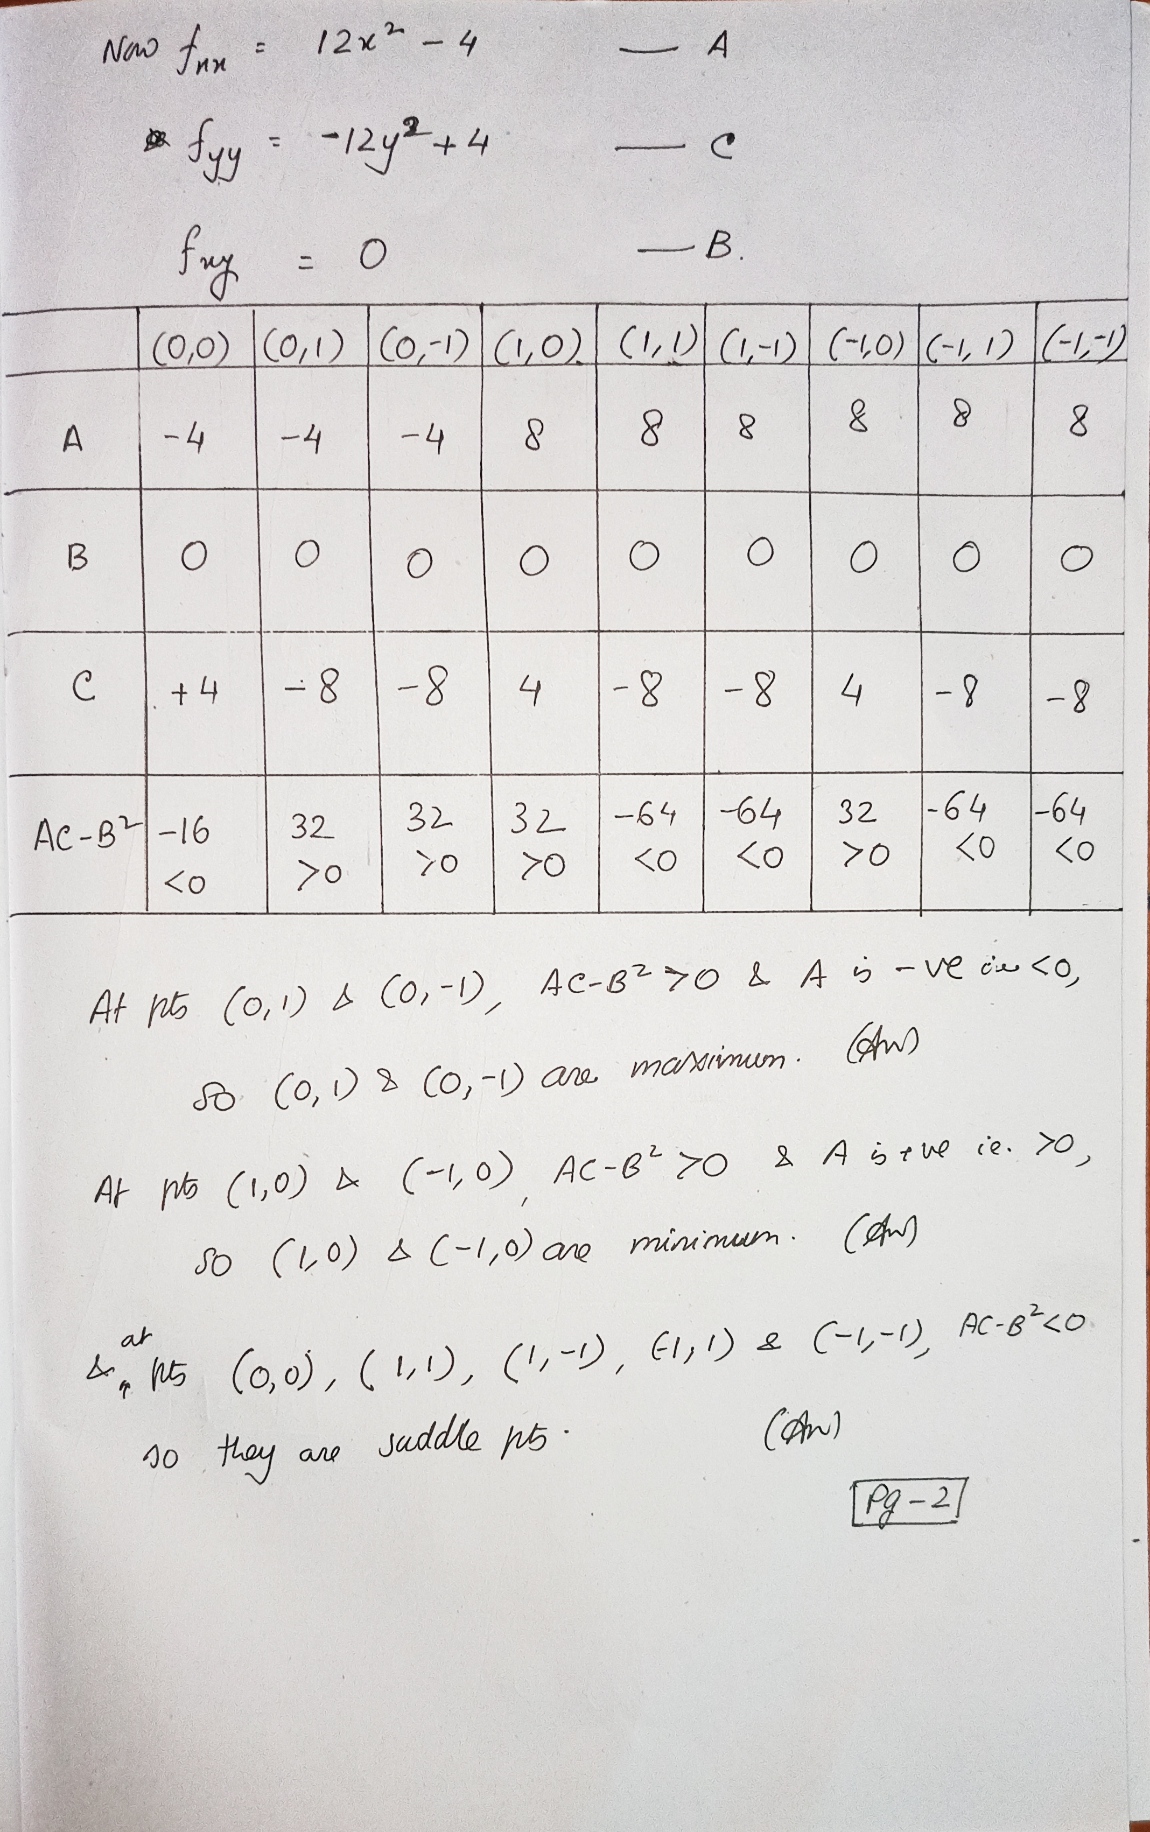 Now fxx = 12x² - 4 — A
fyy = -12y² + 4 — C
fxy = 0 — B.
(0,0) (0,1) (0,-1) (1,0) (1,1) (1,-1) (-1,0) (-1,1) (-1,-1)
A -4 -4 -4 8 8 8 8 8 8
B 0 0 0 0 0 0 0 0 0
C +4 -8 -8 4 -8 -8 4 -8 -8
AC-B² -16 32 32 32 -64 -64 32 -64 -64
<0 >0 >0 >0 <0 <0 >0 <0 <0
At pts (0,1) & (0,-1), AC-B²>0 & A is -ve ie <0,
so (0,1) & (0,-1) are maximum. (Ans)
At pts (1,0) & (-1,0), AC-B²>0 & A is +ve ie. >0,
so (1,0) & (-1,0) are minimum. (Ans)
& at pts (0,0), (1,1), (1,-1), (-1,1) & (-1,-1), AC-B²<0
so they are saddle pts. (Ans)
Pg-2